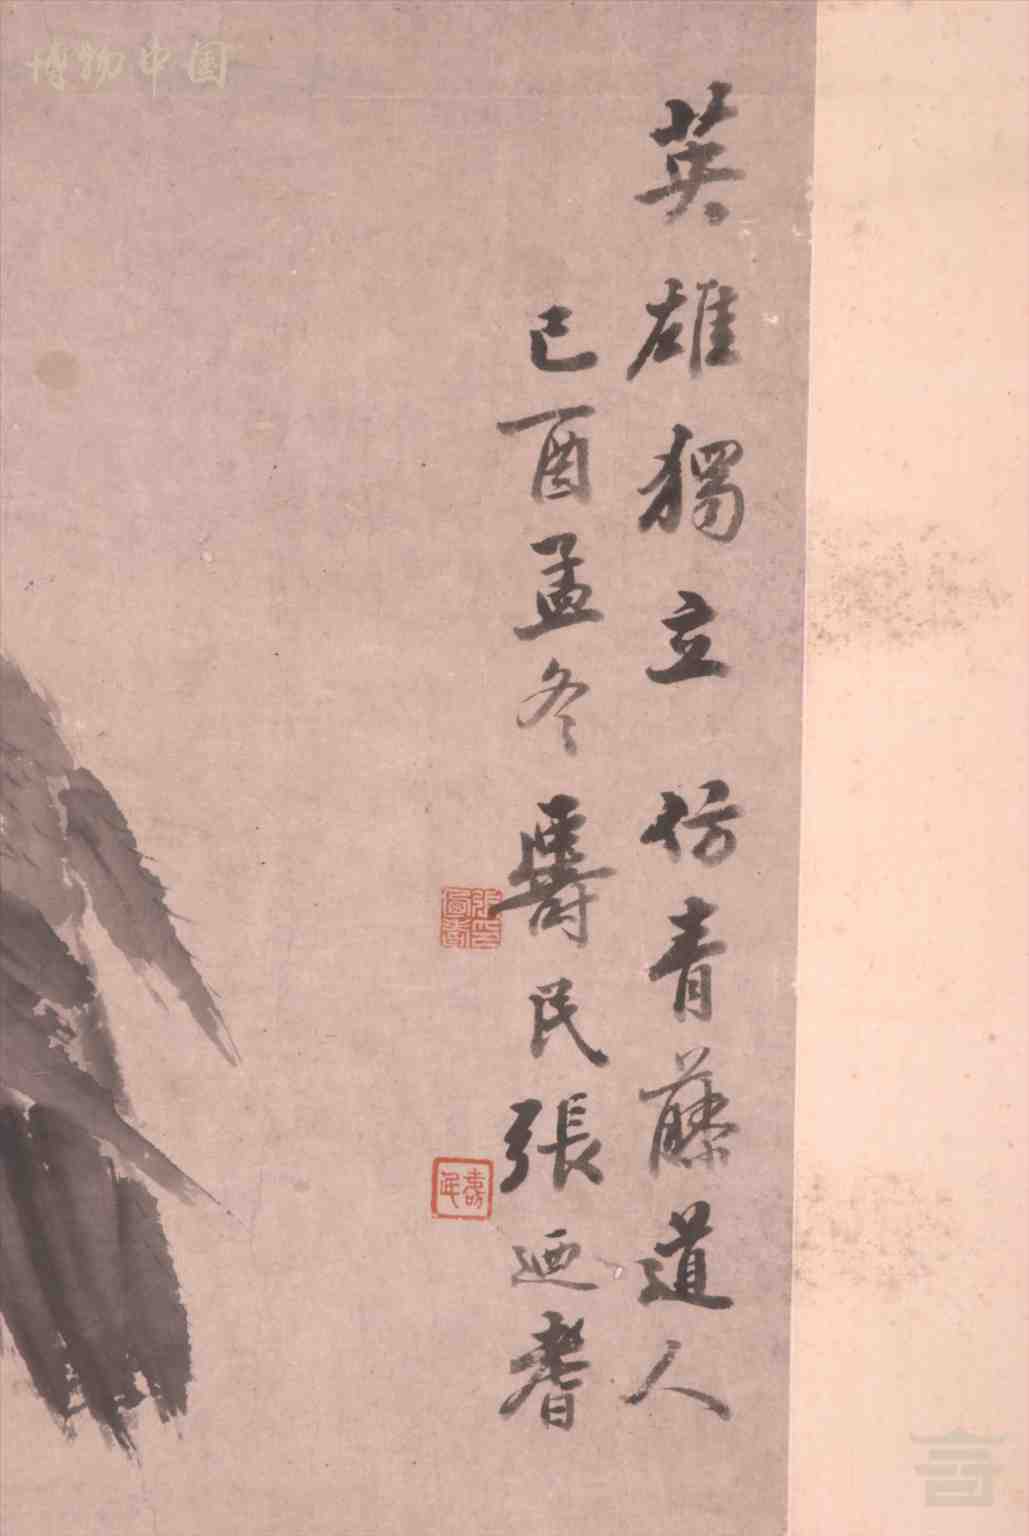 英雄獨立仿青藤道人
己酉孟冬壽民張迺耆
壽民
博物中国